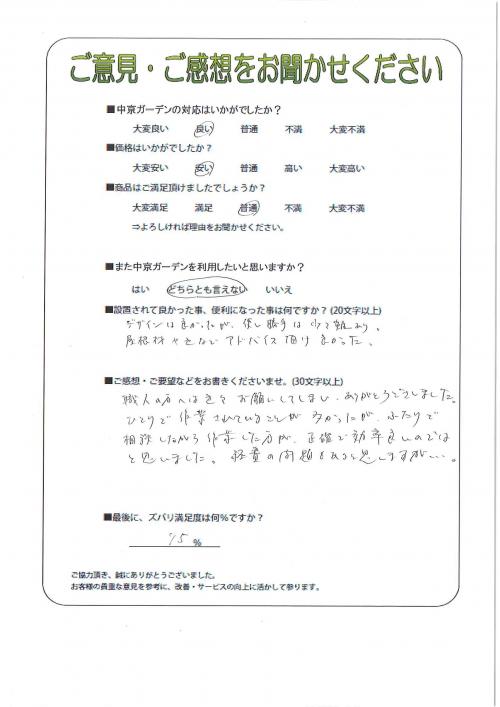 ご意見・ご感想をお聞かせください
■中京ガーデンの対応はいかがでしたか？
大変良い 良い 普通 不満 大変不満
■価格はいかがでしたか？
大変安い 安い 普通 高い 大変高い
■商品はご満足頂けましたでしょうか？
大変満足 満足 普通 不満 大変不満
⇒よろしければ理由をお聞かせください。
■また中京ガーデンを利用したいと思いますか？
はい どちらとも言えない いいえ
■設置されて良かった事、便利になった事は何ですか？(20文字以上)
デザインは良かったが、使い勝手は少々難あり。
屋根材や色など アドバイス頂け良かった。
■ご感想・ご要望などをお書きくださいませ。(30文字以上)
職人の方へは色々お願いしてしまい、ありがとうございました。
ひとりで作業されていることが多かったが、ふたりで
相談しながら作業した方が、正確で効率良いのでは
と思いました。経費の問題もあると思いますが…。
■最後に、ズバリ満足度は何％ですか？
75 %
ご協力頂き、誠にありがとうございました。
お客様の貴重な意見を参考に、改善・サービスの向上に活かして参ります。